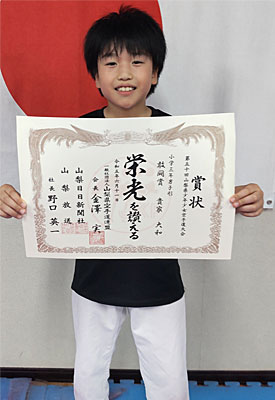 賞状
第三十回山梨県少年少女空手道大会
小学三年男子形
敢闘賞 貴家 大和
栄光を讃える
令和五年六月十一日
一般社団法人山梨県空手道連盟
会長 金澤 実
山梨日日新聞社
山梨放送
社長 野口 英一